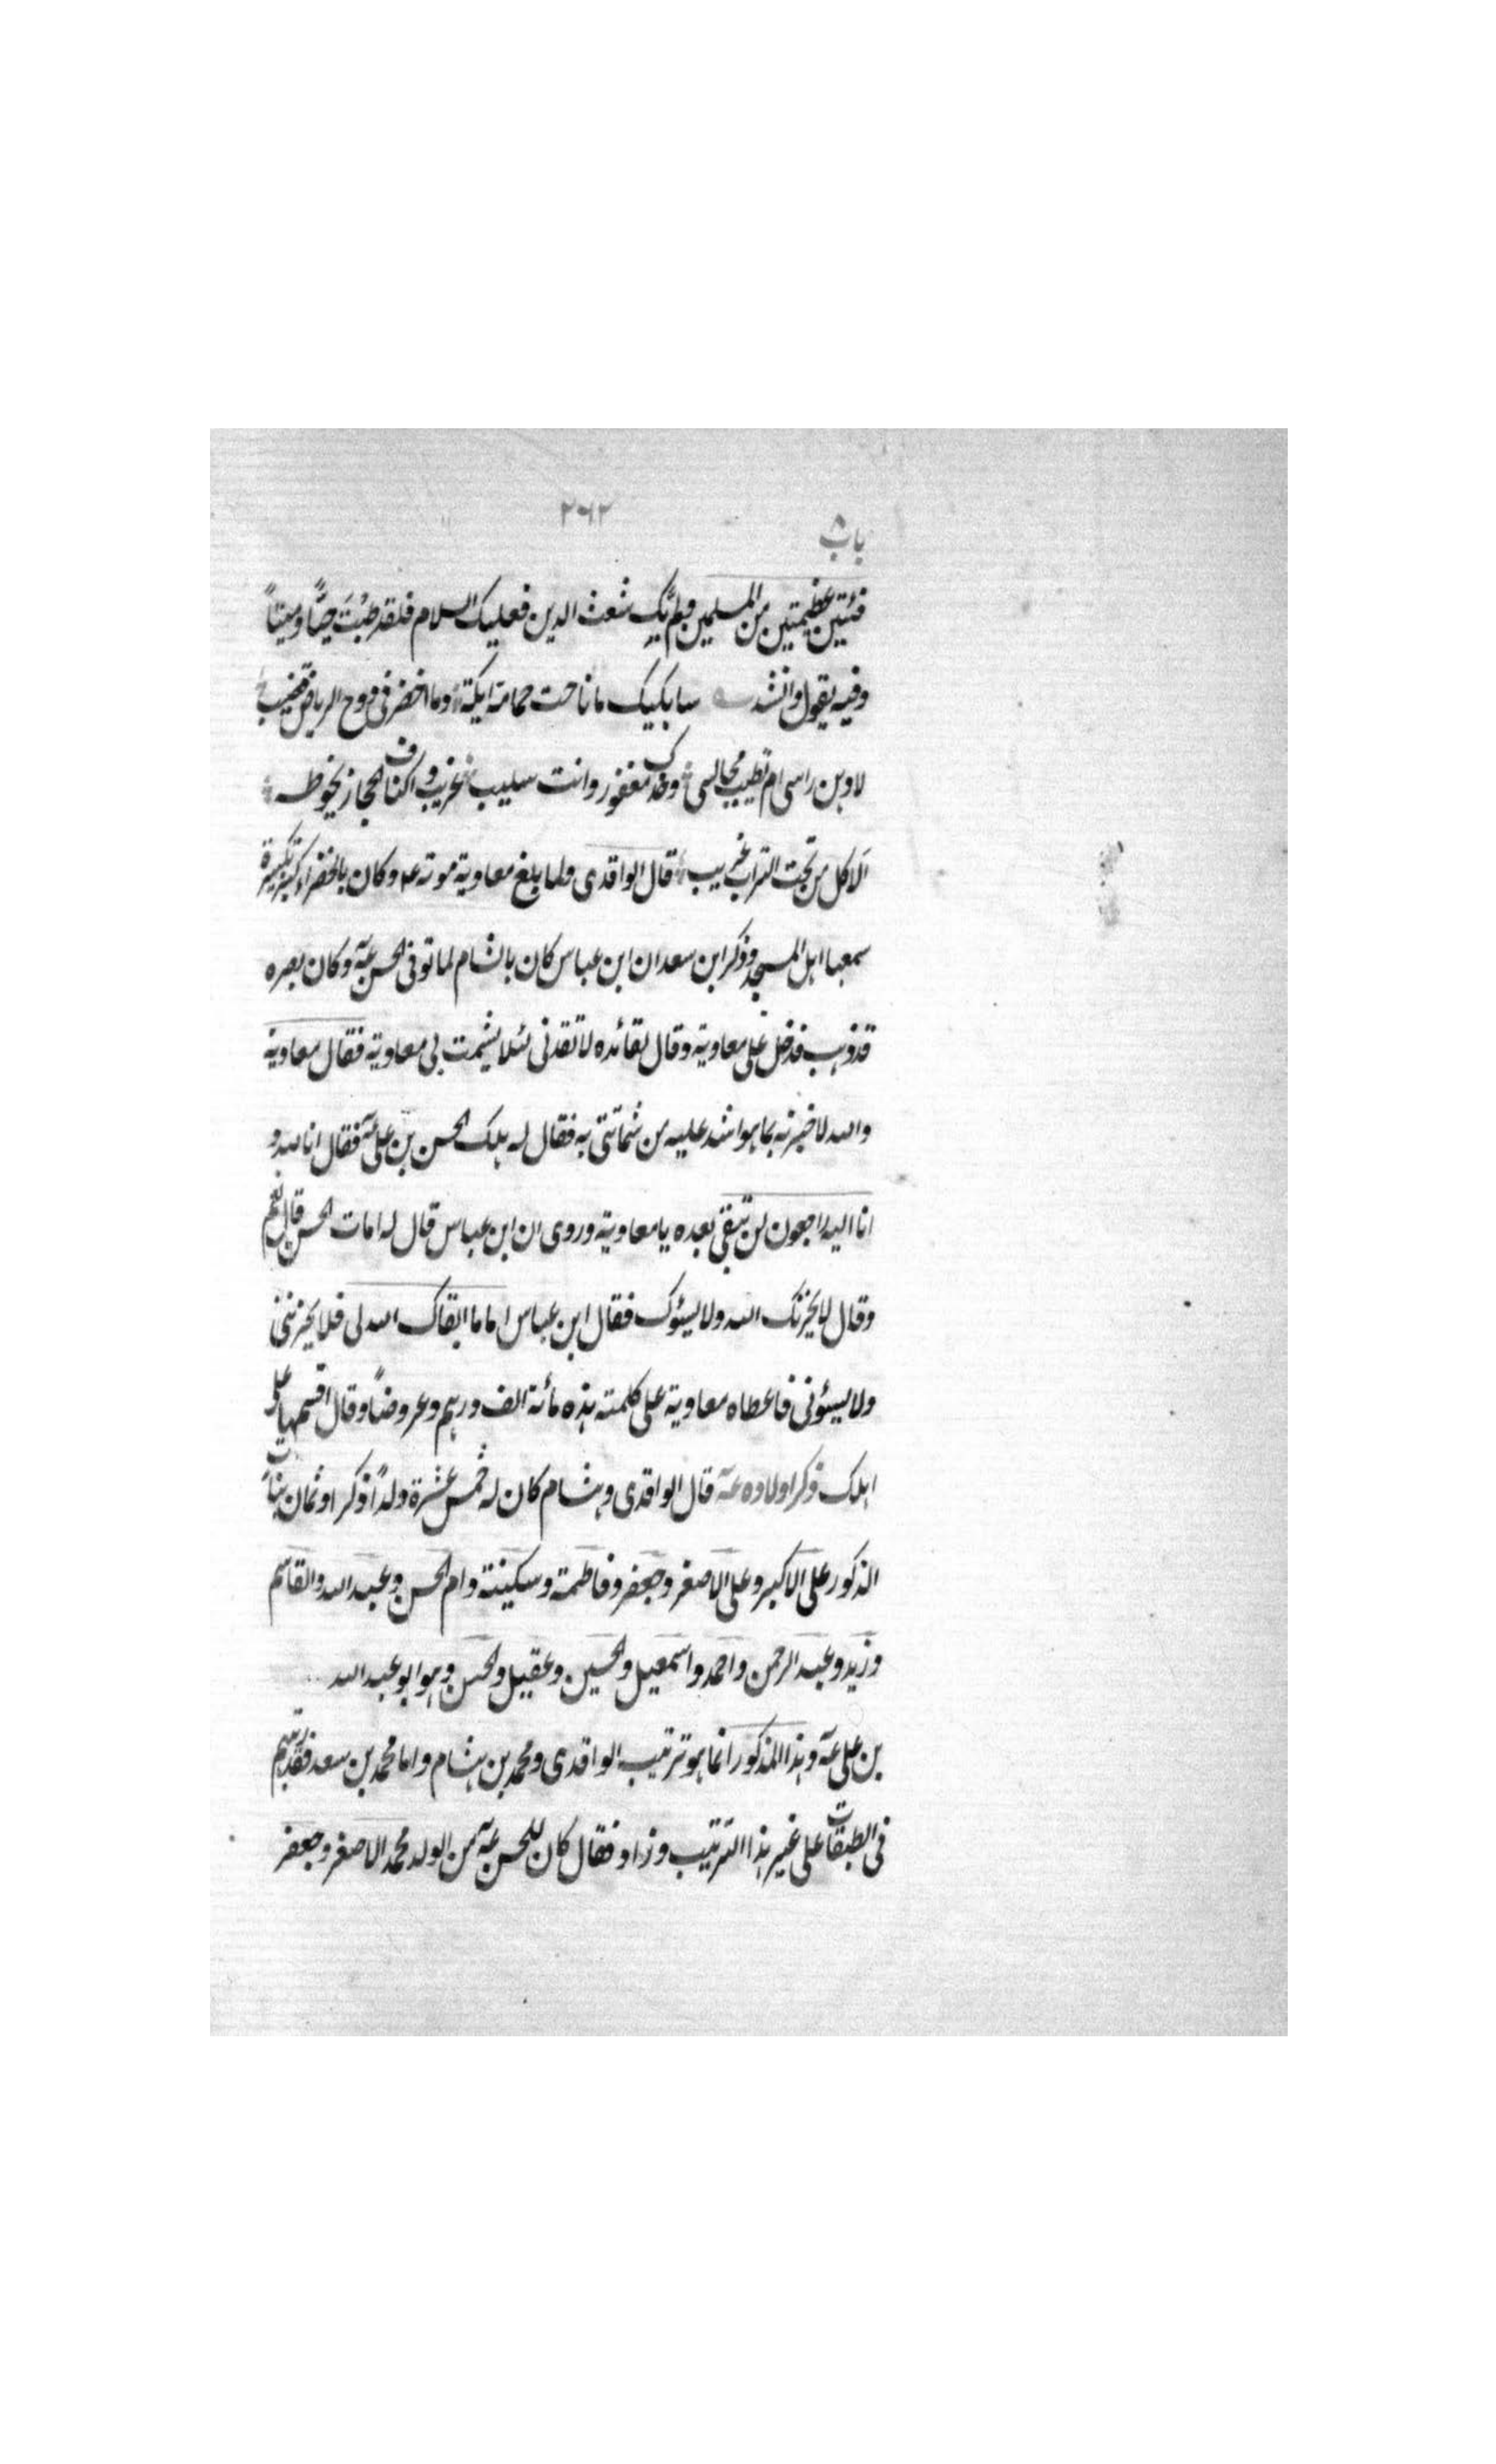 ٢٦٢
باب ٨
فئتين عظيمتين من المسلمين ولم بك شعث الدين فعليك السلام فلقد طبت حيًّا وميتاً
وفيه يقول وانشد سابكيك ما ناحت حمامة ايكة وما اخضر فى دوح الرياض قضيب
لادهن راسى ام تطيب مجالسى وخدك معفور وانت سليب غريب واكناف الحجاز يحوطه
الا كل من تحت التراب غريب قال الواقدى ولما بلغ معاوية موته عم وكان بالخضراء كبر تكبيرة
سمعها اهل المسجد وذكر ابن سعد ان ابن عباس كان بالشام لما توفى الحسن عۤه وكان بصره
قد ذهب فدخل على معاوية وقال لقائده لا تقدنى لئلا يشمت بى معاوية فقال معاوية
والله لاخبرنه بما هو اشد عليه من شماتتى به فقال له هلك الحسن بن على عۤه فقال انا لله و
انا اليه راجعون لن تبقى بعده يا معاوية وروى ان ابن عباس قال له امات الحسن قال نعم
وقال لا يحزنك الله ولا يسئوك فقال ابن عباس اما ما ابقاك الله لى فلا يحزننى
ولا يسئونى فاعطاه معاوية على كلمته هذه مائة الف درهم وعروضاً وقال اقسمها على
اهلك ذكر اولاده عۤه قال الواقدى وهشام كان له خمس عشرة ولداً ذكرا وثمان بنات
الذكور على الاكبر وعلى الاصغر وجعفر وفاطمة وسكينة وام الحسن وعبد الله والقاسم
وزيد وعبد الرحمن واحمد واسمعيل والحسين وعقيل والحسن وهو ابو عبد الله
بن على عۤه وهذا المذكور انما هو ترتيب الواقدى ومحمد بن هشام واما محمد بن سعد فقد رتبهم
فى الطبقات على غير هذا الترتيب وزاد فقال كان للحسن عۤه من الولد محمد الاصغر وجعفر